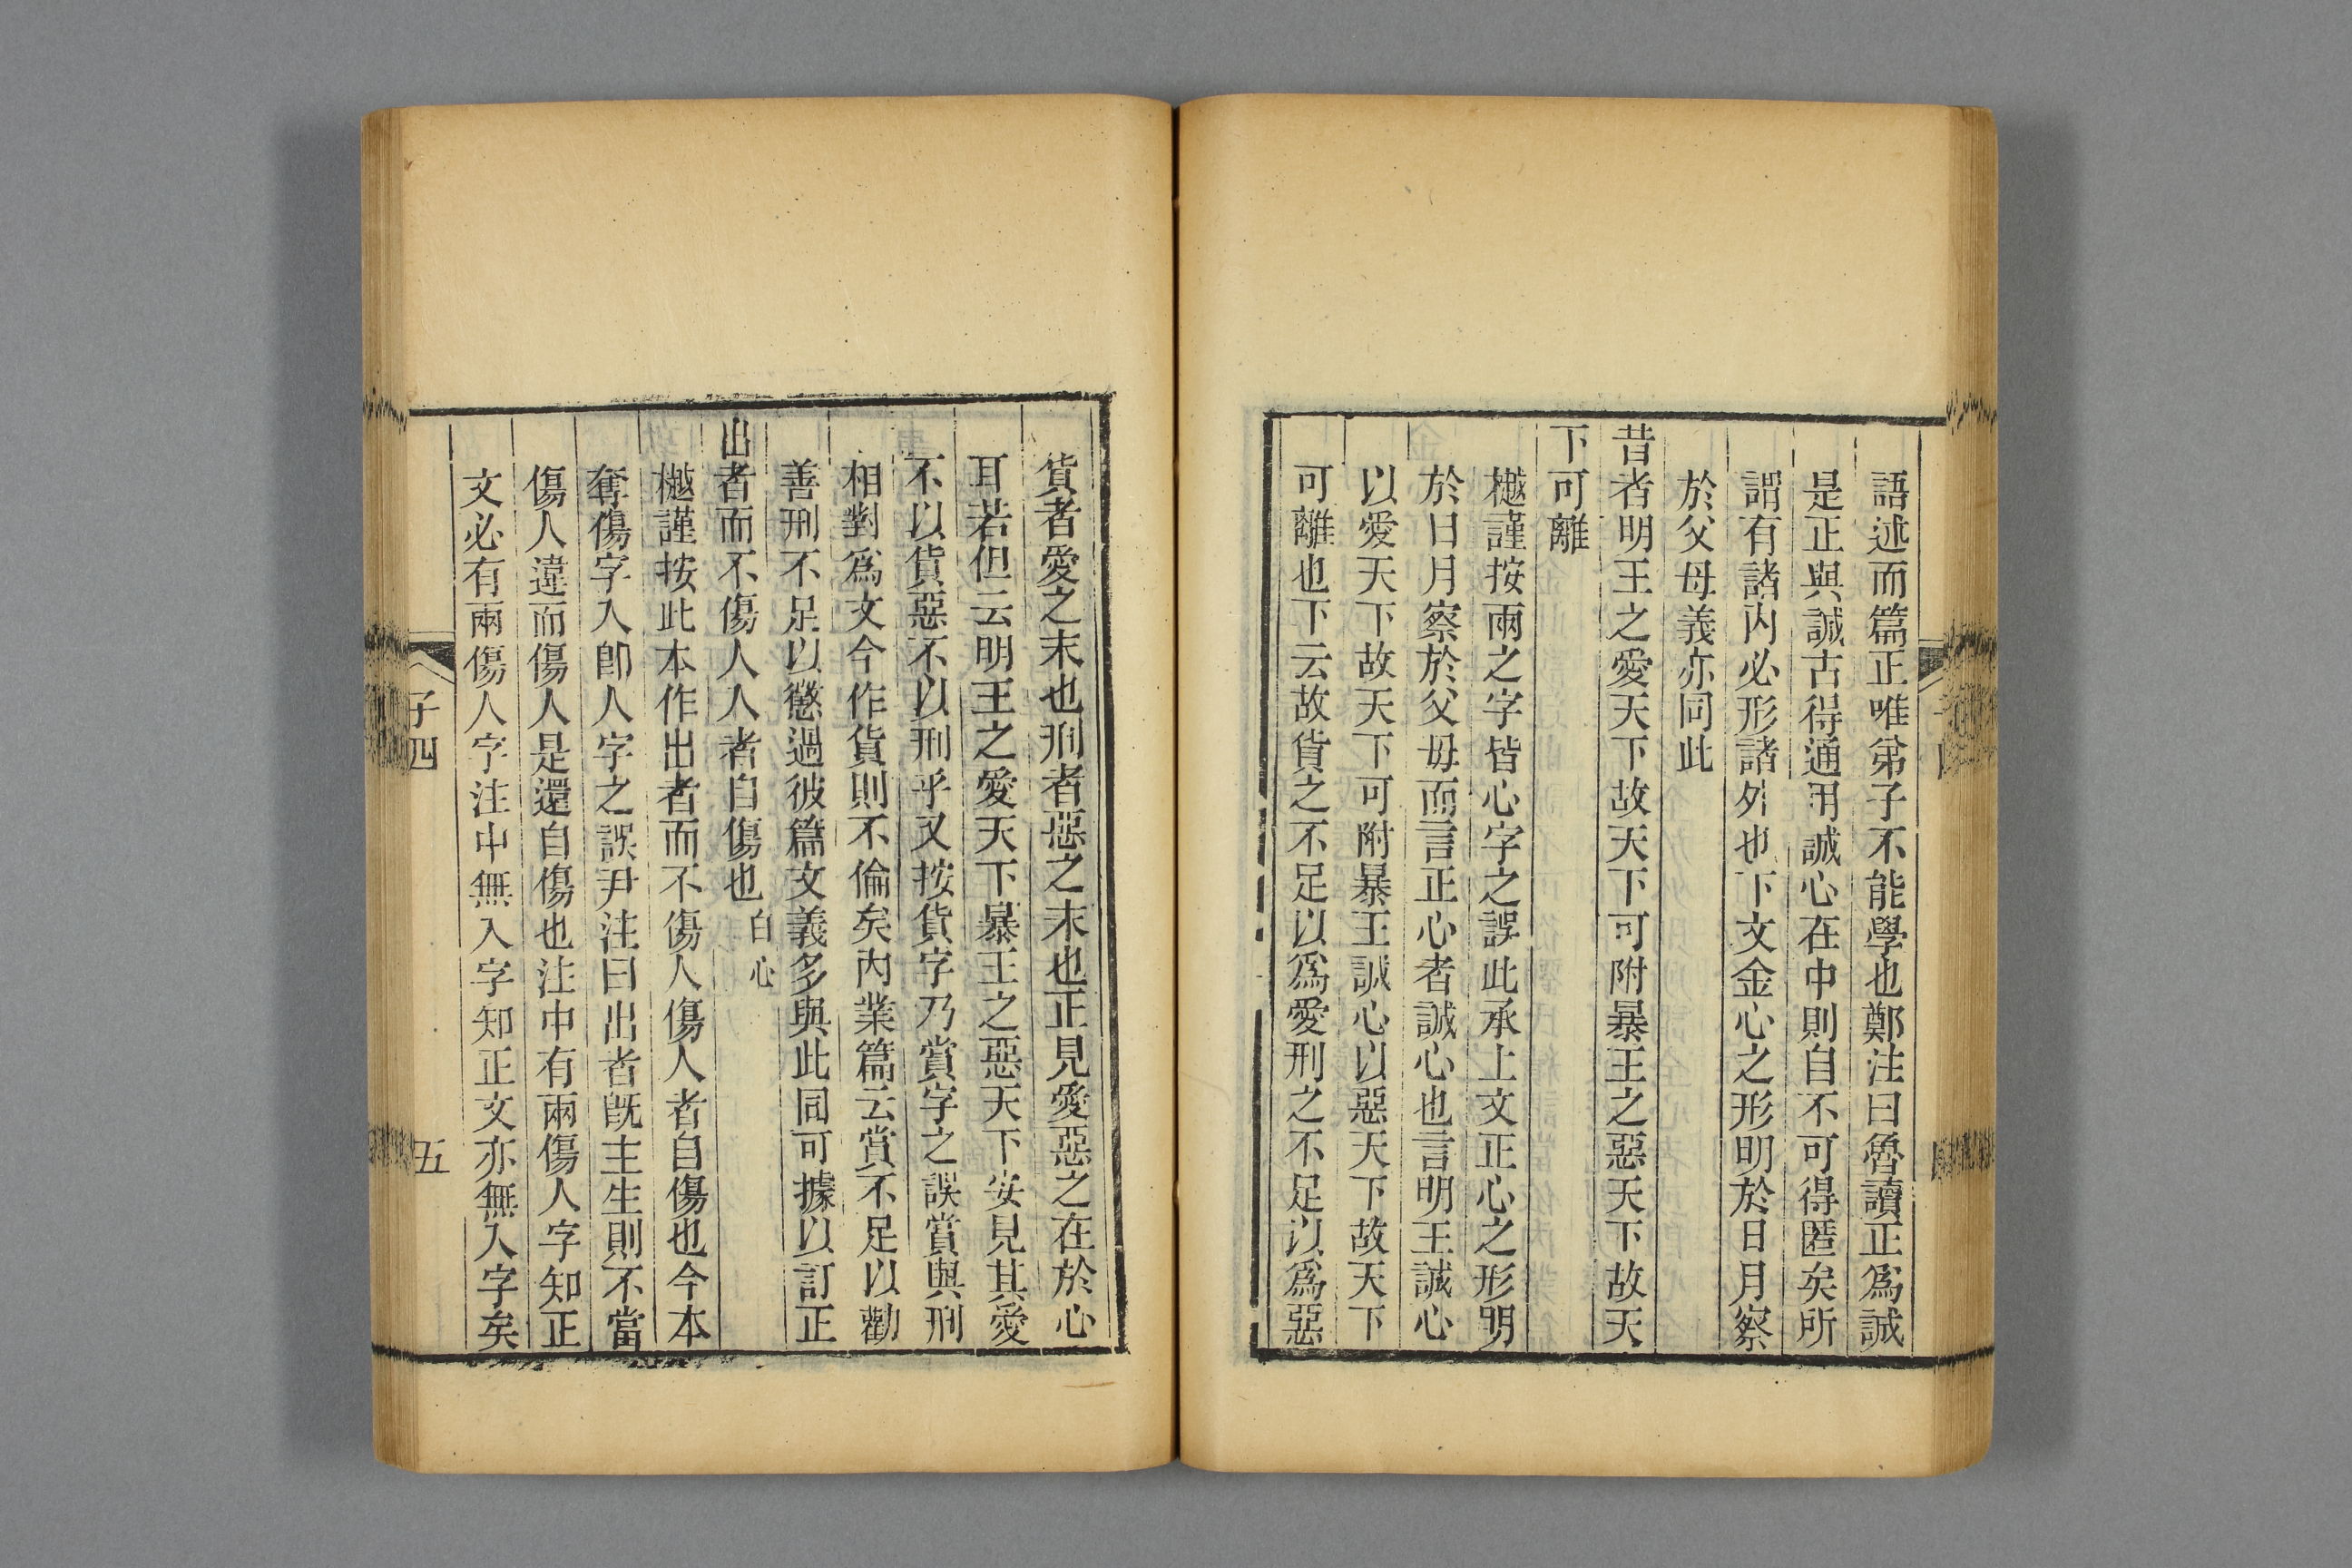 語述而篇正唯弟子不能學也鄭注曰魯讀正爲誠
是正與誠古得通用誠心在中則自不可得匿矣所
謂有諸內必形諸外也下文金心之形明於日月察
於父母義亦同此
昔者明王之愛天下故天下可附暴王之惡天下故天
下可離
樾謹按兩之字皆心字之誤此承上文正心之形明
於日月察於父母而言正心者誠心也言明王誠心
以愛天下故天下可附暴王誠心以惡天下故天下
可離也下云故貨之不足以爲愛刑之不足以爲惡
貨者愛之末也刑者惡之末也正見愛惡之在於心
耳若但云明王之愛天下暴王之惡天下安見其愛
不以貨惡不以刑乎又按貨字乃賞字之誤賞與刑
相對爲文今作貨則不倫矣內業篇云賞不足以勸
善刑不足以懲過彼篇文義多與此同可據以訂正
出者而不傷人人者自傷也白心
樾謹按此本作出者而不傷人傷人者自傷也今本
奪傷字入卽人字之誤尹注曰出者旣主生則不當
傷人違而傷人是還自傷也注中有兩傷人字知正
文必有兩傷人字注中無入字知正文亦無入字矣
子四
五